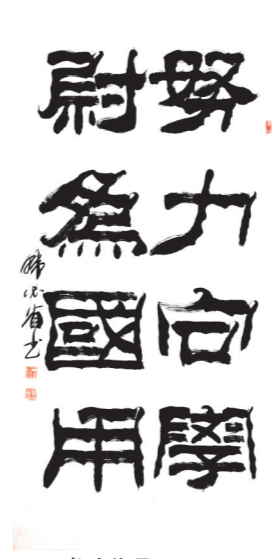 努力向學
尉為國用